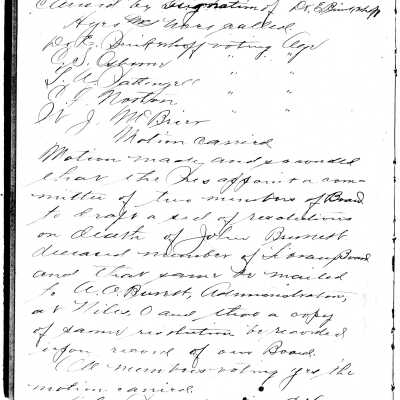 caused by resignation of Dr. E. Brinkerhoff
Ayes & Nays called
Dr. E. Brinkerhoff voting Aye
C. D. Osborn " "
S. A. " "
E. G. Norton " "
W J. McBrier " "
Motion carried
Motion made and seconded
that the Pres appoint a com
mittee of two members of Board
to draft a set of resolutions
on death of John Burnett
deceased member of Library Board
and that same be mailed
to A. C. Burnett, Administrator,
at Niles, O and that a copy
of same resolution be recorded
upon record of our Board.
All members voting yes, the
motion carried.